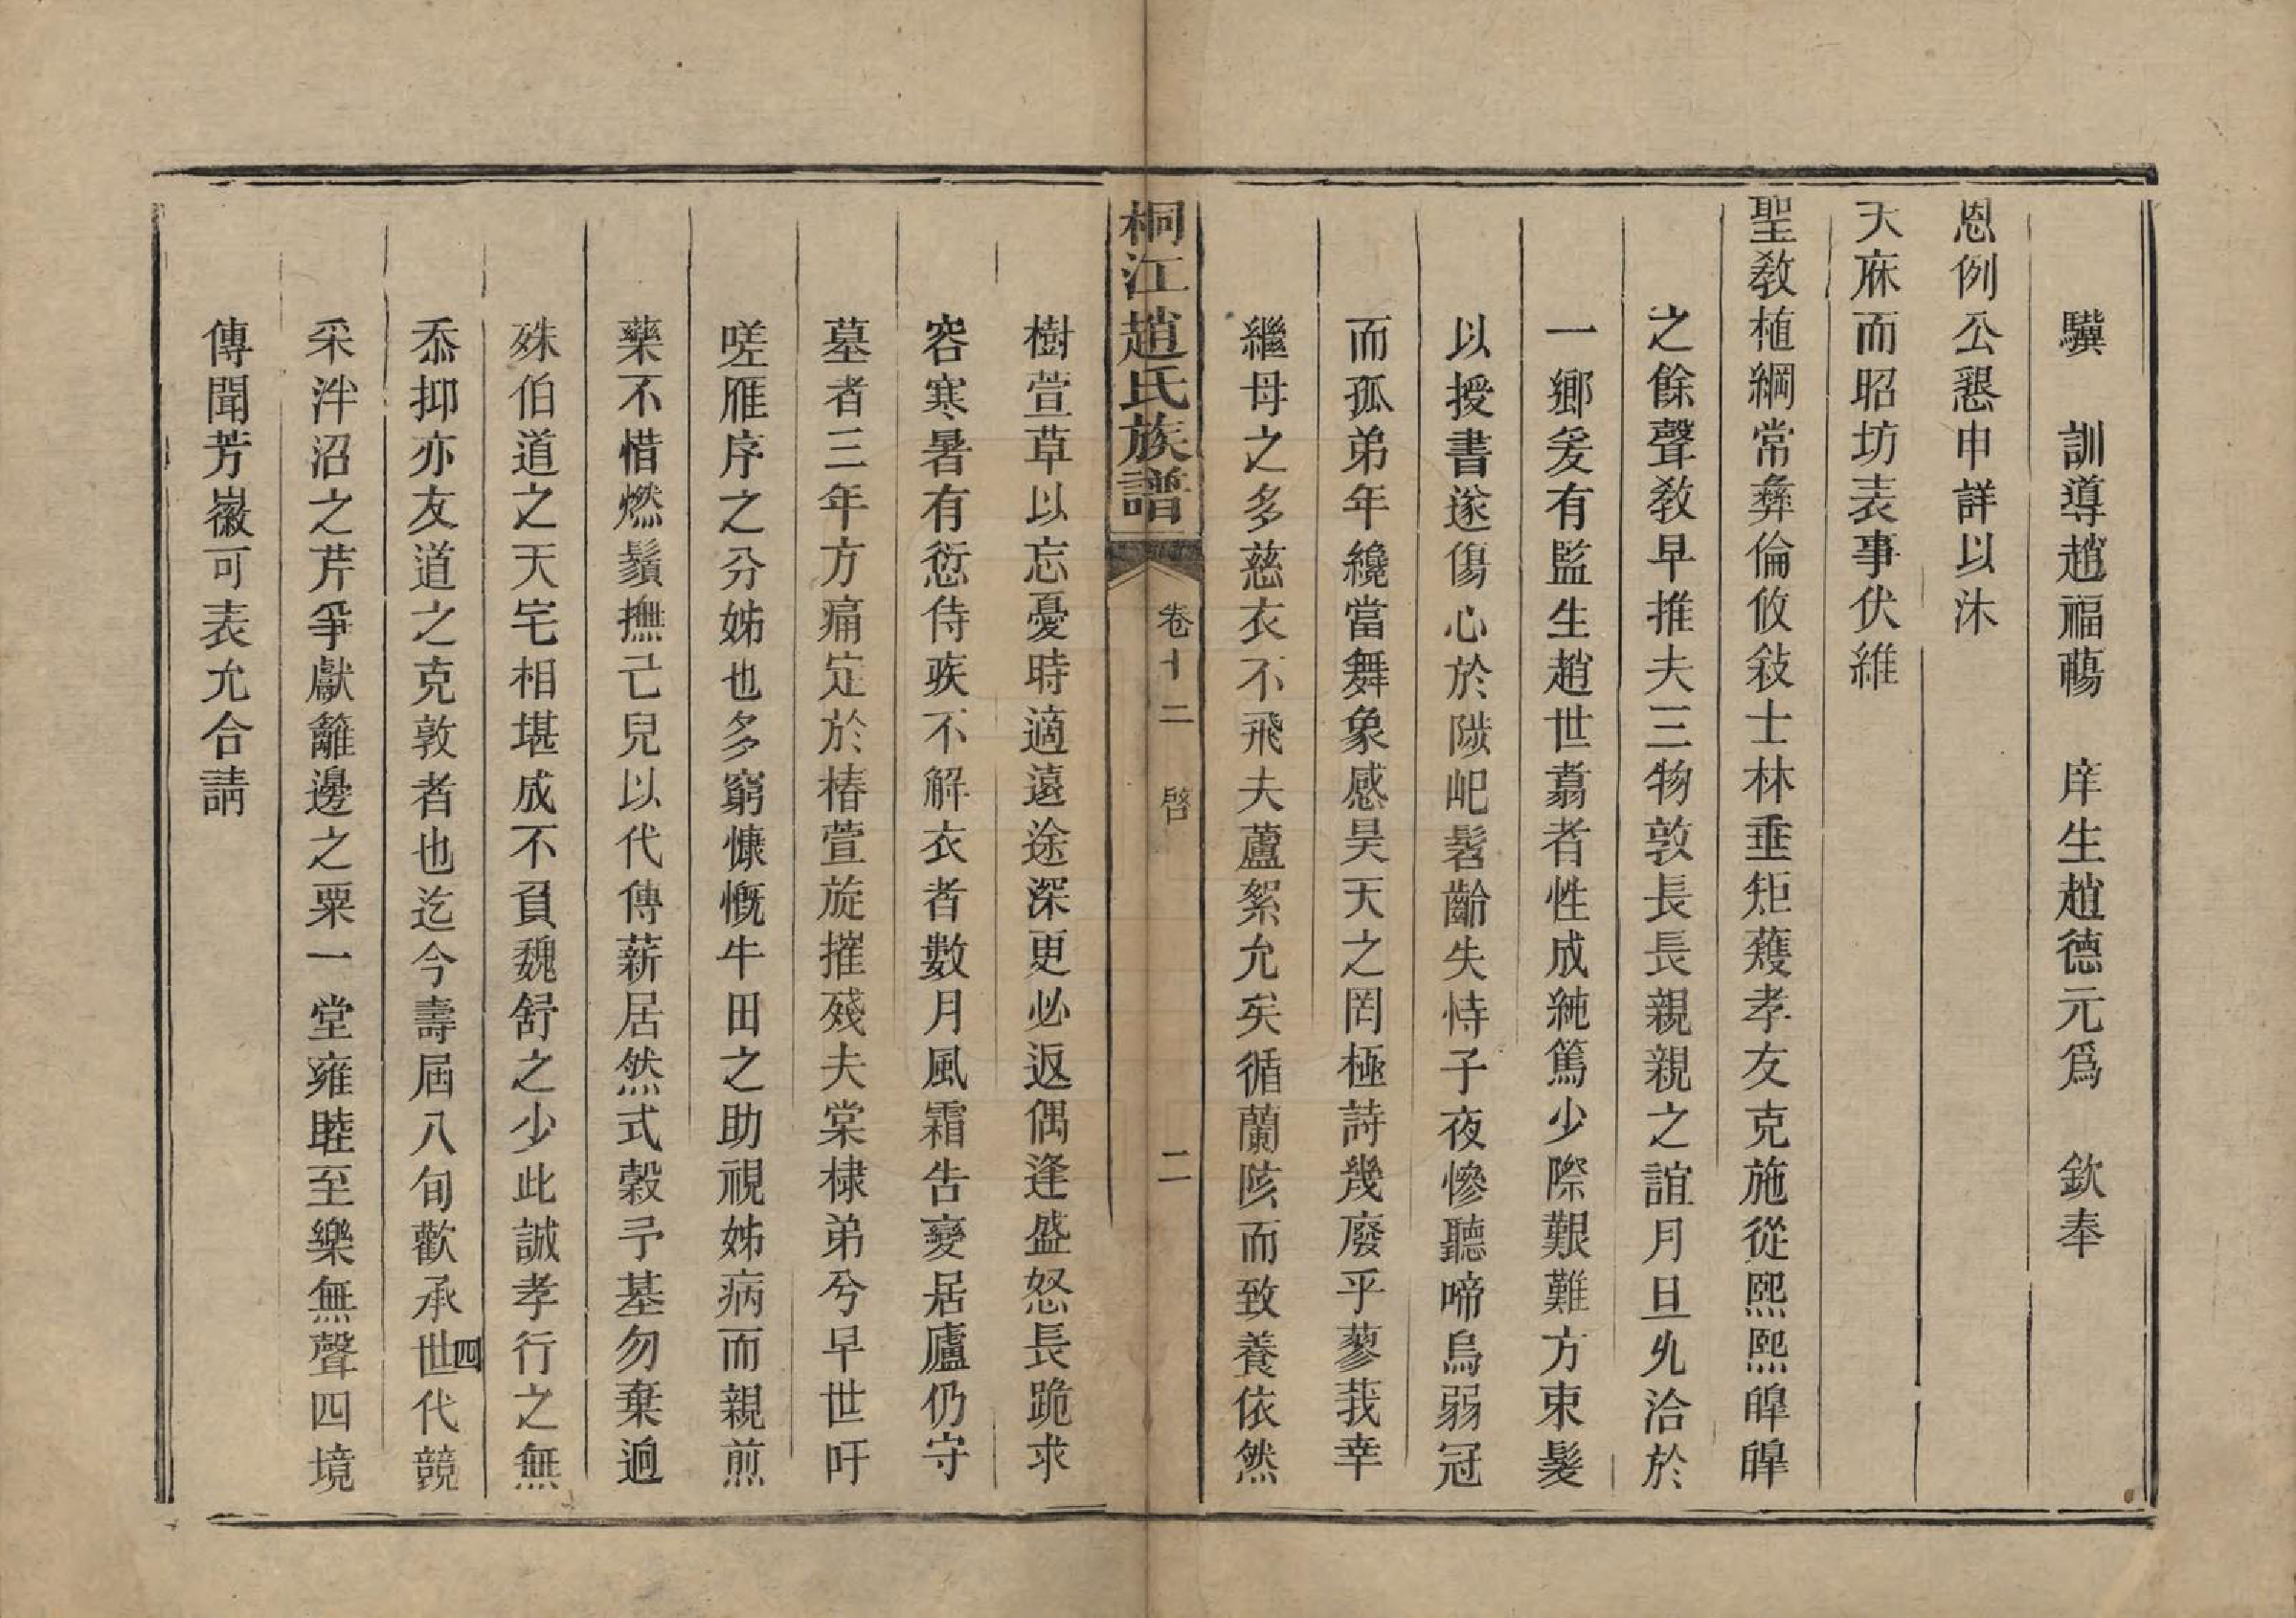 驥　訓導趙福蘮　庠生趙德元爲　欽奉
恩例公懇申詳以沐
天庥而昭坊表事伏維
聖敎植綱常彝倫攸敍士林垂矩蒦孝友克施從熙熙皥皥
之餘聲敎早推夫三物敦長長親親之誼月旦允洽於
一鄉爰有監生趙世翥者性成純篤少際艱難方束髮
以授書遂傷心於陟屺髫齡失恃子夜慘聽啼烏弱冠
而孤弟年纔當舞象感昊天之罔極詩幾廢乎蓼莪幸
繼母之多慈衣不飛夫蘆絮允矣循蘭陔而致養依然
桐江趙氏族譜　卷十二　啓　二
樹萱草以忘憂時適遠途深更必返偶逢盛怒長跪求
容寒暑有愆侍疾不解衣者數月風霜告變居廬仍守
墓者三年方痛定於椿萱旋摧殘夫棠棣弟兮早世吁
嗟雁序之分姊也多窮慷慨牛田之助視姊病而親煎
藥不惜燃鬚撫己兒以代傳薪居然式穀予基勿棄迥
殊伯道之天宅相堪成不負魏舒之少此誠孝行之無
忝抑亦友道之克敦者也迄今壽屆八旬歡承四世代競
采泮沼之芹爭獻籬邊之粟一堂雍睦至樂無聲四境
傳聞芳徽可表允合請